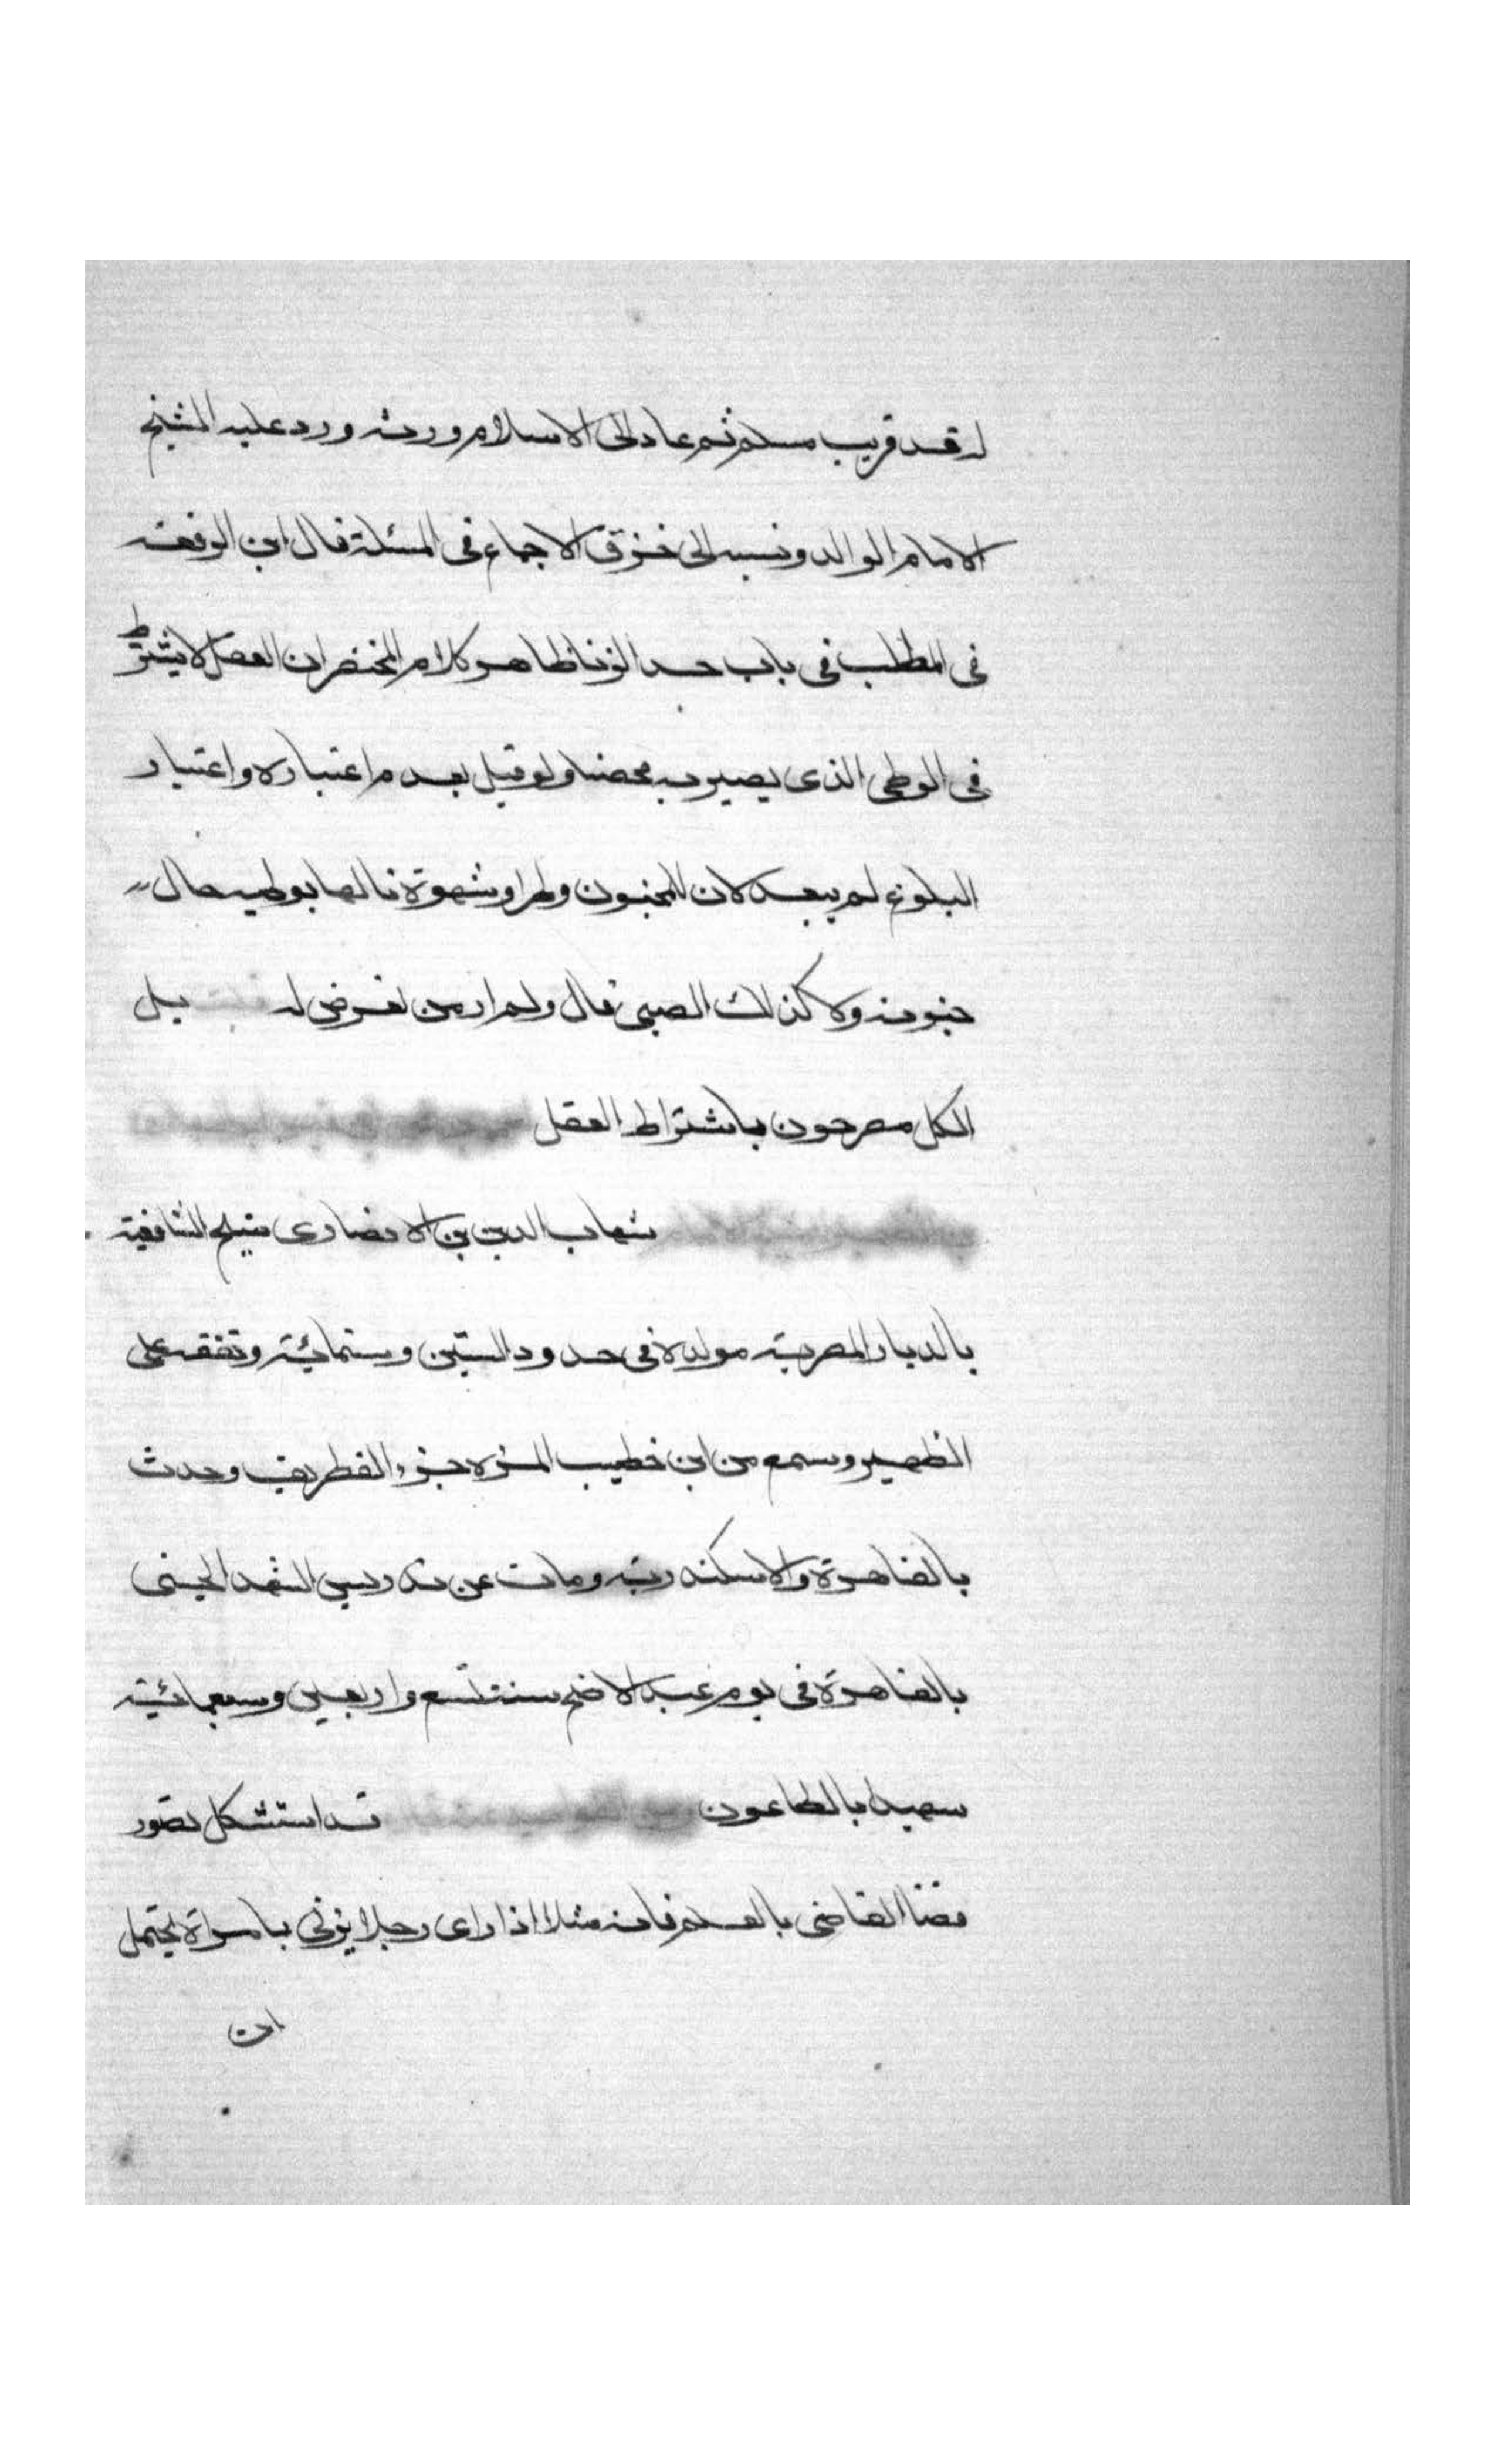 له قد قريب مسلم ثم عاد الى الاسلام ورثه ورد عليه الشيخ
الامام الوالد ونسبه الى خرق الاجماع فى المسئلة قال ابن الرفعة
فى المطلب فى باب حد الزنا ظاهر كلام المختصر ان العقل لا يشترط
فى الوطى الذى يصير به محصنا ولو قيل بعدم اعتباره واعتبار
البلوغ لم يبعد لان للمجنون وطرا وشهوة نالها بوطيه حال
جنونه ولا كذلك الصبى قال ولم ار من تعرض له بل
الكل مصرحون باشتراط العقل
شهاب الدين بن الانصارى شيخ الشافعية
بالديار المصرية مولده فى حدود الستين وستمائية وتفقه على
الظهير وسمع من ابن خطيب المزه جزء الغطريف وحدث
بالقاهرة والاسكندرية ومات عن تدريس المشهد الحسينى
بالقاهرة فى يوم عيد الاضحى سنة تسع واربعين وسبعمائية
شهيدا بالطاعون قد استشكل تصور
قضا القاضى بالعلم فانه مثلا اذا راى رجلا يزنى بامراة يحتمل
ان